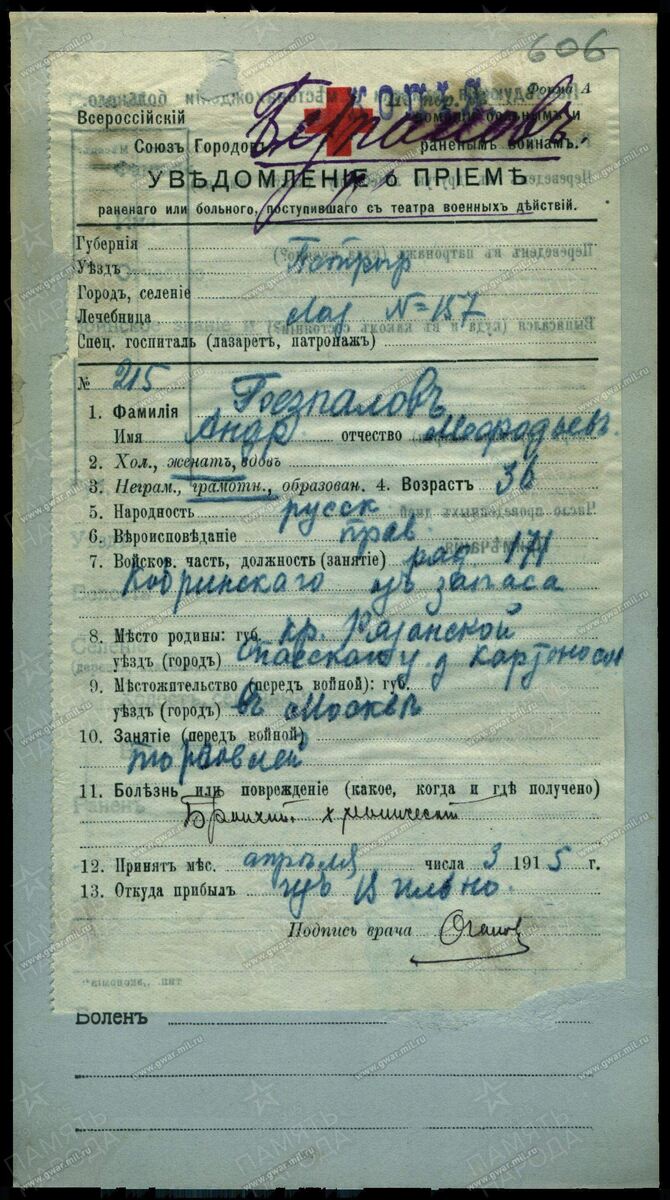 606
КОПІЯ
Форма А
Всероссійскій помощи больнымъ и
Союзъ Городовъ раненымъ воинамъ.
УВѢДОМЛЕНІЕ о ПРІЕМѢ
раненаго или больного, поступившаго съ театра военныхъ дѣйствій.
Губернія
Уѣздъ Петрогр
Городъ, селеніе
Лечебница Лаз №157
Спец. госпиталь (лазаретъ, патронажъ)
№ 215
1. Фамилія
Имя Андр отчество Мефодьев.
2. Хол., женатъ, вдовъ
3. Неграм., грамотн., образован. 4. Возрастъ 36
5. Народность русск
6. Вѣроисповѣданіе прав.
7. Войсков. часть, должность (занятіе) ряд 171
Кобринскаго изъ запаса
8. Мѣсто родины: губ. кр. Рязанской
уѣздъ (городъ) Спасскаго у. д Картоносов
9. Мѣстожительство (передъ войной): губ.
уѣздъ (городъ) въ Москвѣ
10. Занятіе (передъ войной)
торговлей
11. Болѣзнь или поврежденіе (какое, когда и гдѣ получено)
Бронхит хронический
12. Принятъ мѣс. апрѣля числа 3 1915 г.
13. Откуда прибылъ изъ Вильно.
Подпись врача
Боленъ
ПАМЯТЬ НАРОДА
www.gwar.mil.ru